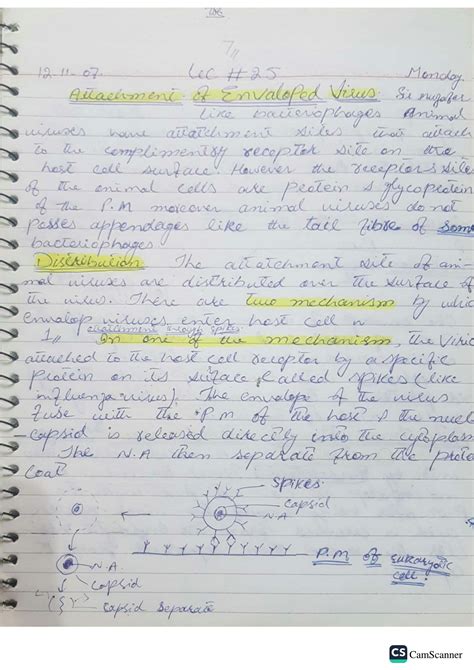 7,,
12.11.07. Lec # 25 Monday
Attachment of Envaloped Virus. Sir
Like bacteriophages animal
viruses have attatchment sites that attach
to the complimentry receptor site on the
host cell surface. However the receptor sites
of the animal cells are protein & glycoprotein
of the P.M moreover animal viruses do not
posses appendages like the tail fibre of some
bacteriophages
Distribution The attatchment site of ani-
mal viruses are distributed over the surface of
the virus. There are two mechanism by which
envalop viruses enter host cell
attatchment through spikes.
1,, In one of the mechanism, the
attached to the host cell receptor by a specific
protein on its surface called spikes (like
influenza virus). The envelope of the virus
fuse with the P.M of the host & the
capsid is released directly into the cytoplasm
The N.A then separate from the
coat
Spikes
Capsid
N.A
N.A.
P.M of eukaryotic
cell.
capsid
capsid separate
CS CamScanner